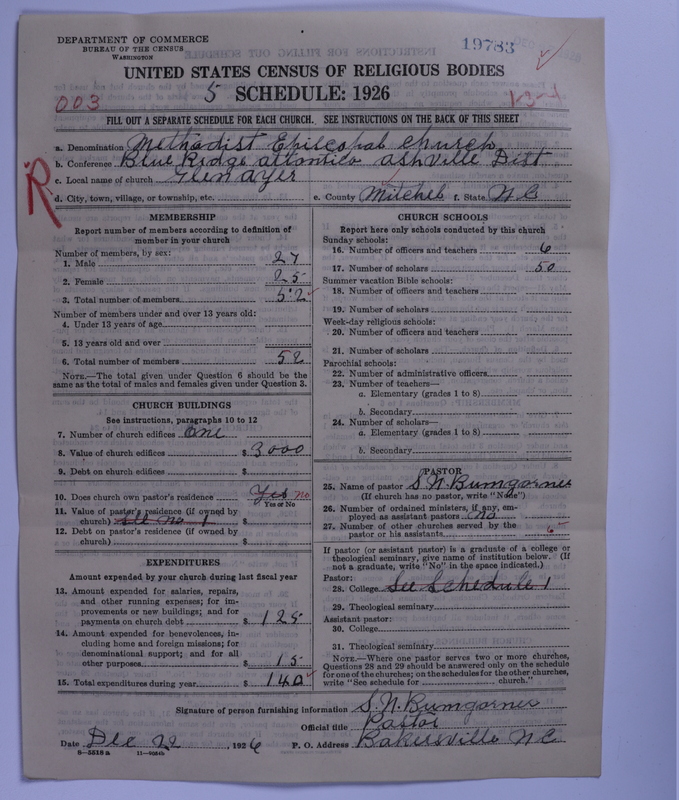 DEPARTMENT OF COMMERCE
BUREAU OF THE CENSUS
WASHINGTON
19783
UNITED STATES CENSUS OF RELIGIOUS BODIES
003
5
SCHEDULE: 1926
FILL OUT A SEPARATE SCHEDULE FOR EACH CHURCH. SEE INSTRUCTIONS ON THE BACK OF THIS SHEET
a. Denomination Methodist Episcopal church
b. Conference Blue Ridge atlantico ashville Dist
c. Local name of church Glenayer
R
d. City, town, village, or township, etc. e. County Mitchel f. State N.C.
MEMBERSHIP
Report number of members according to definition of
member in your church
Number of members, by sex:
1. Male 27
2. Female 25
3. Total number of members 52
Number of members under and over 13 years old:
4. Under 13 years of age
5. 13 years old and over
6. Total number of members 52
NOTE.—The total given under Question 6 should be the
same as the total of males and females given under Question 3.
CHURCH BUILDINGS
See instructions, paragraphs 10 to 12
7. Number of church edifices One
8. Value of church edifices $ 3000
9. Debt on church edifices $
10. Does church own pastor's residence Yes no
Yes or No
11. Value of pastor's residence (if owned by
church) see no 1 $
12. Debt on pastor's residence (if owned by
church) $
EXPENDITURES
Amount expended by your church during last fiscal year
13. Amount expended for salaries, repairs,
and other running expenses; for im-
provements or new buildings; and for
payments on church debt $ 125
14. Amount expended for benevolences, in-
cluding home and foreign missions; for
denominational support; and for all
other purposes $ 15
15. Total expenditures during year $ 140
CHURCH SCHOOLS
Report here only schools conducted by this church
Sunday schools:
16. Number of officers and teachers 6
17. Number of scholars 50
Summer vacation Bible schools:
18. Number of officers and teachers
19. Number of scholars
Week-day religious schools:
20. Number of officers and teachers
21. Number of scholars
Parochial schools:
22. Number of administrative officers
23. Number of teachers—
a. Elementary (grades 1 to 8)
b. Secondary
24. Number of scholars—
a. Elementary (grades 1 to 8)
b. Secondary
PASTOR
25. Name of pastor S. N. Bumgarner
(If church has no pastor, write "None")
26. Number of ordained ministers, if any, em-
ployed as assistant pastors no
27. Number of other churches served by the
pastor or his assistants 6
If pastor (or assistant pastor) is a graduate of a college or
theological seminary, give name of institution below. (If
not a graduate, write "No" in the space indicated.)
Pastor:
28. College See Schedule 1
29. Theological seminary
Assistant pastor:
30. College
31. Theological seminary
NOTE.—Where one pastor serves two or more churches,
Questions 28 and 29 should be answered only on the schedule
for one of the churches; on the schedules for the other churches,
write "See schedule for church."
Signature of person furnishing information S. N. Bumgarner
Official title Pastor
Date Dec 22, 1926 P. O. Address Bakersville N.C.
8—5518a 11—9084b